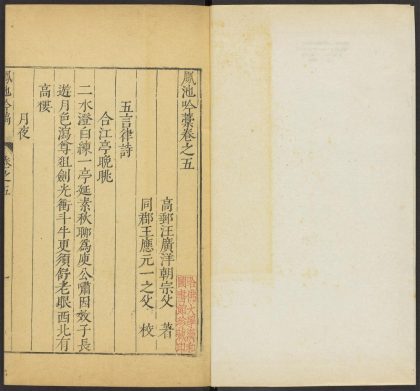 鳳池吟藁卷之五
高郵汪廣洋朝宗父 著
同郡王應元一之父 校
五言律詩
合江亭晚眺
二水澄白練一亭延素秋聊為庾公嘯因效子長
遊月色瀉尊俎劍光衝斗牛更須舒老眼西北有
高樓
月夜
鳳池吟稿 卷之五 一